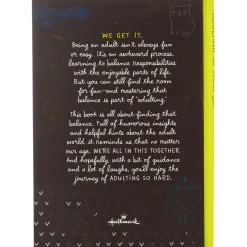 WE GET IT.
Being an adult isn't always fun
or easy. It's an awkward process,
learning to balance responsibilities
with the enjoyable parts of life.
But you can still find the room
for fun—and mastering that
balance is part of "adulting."
This book is all about finding that
balance. Full of humorous insights
and helpful hints about the adult
world, it reminds us that no matter
our age, WE'RE ALL IN THIS TOGETHER.
And hopefully, with a bit of guidance
and a lot of laughs, you'll enjoy
the journey of ADULTING SO HARD.
Hallmark